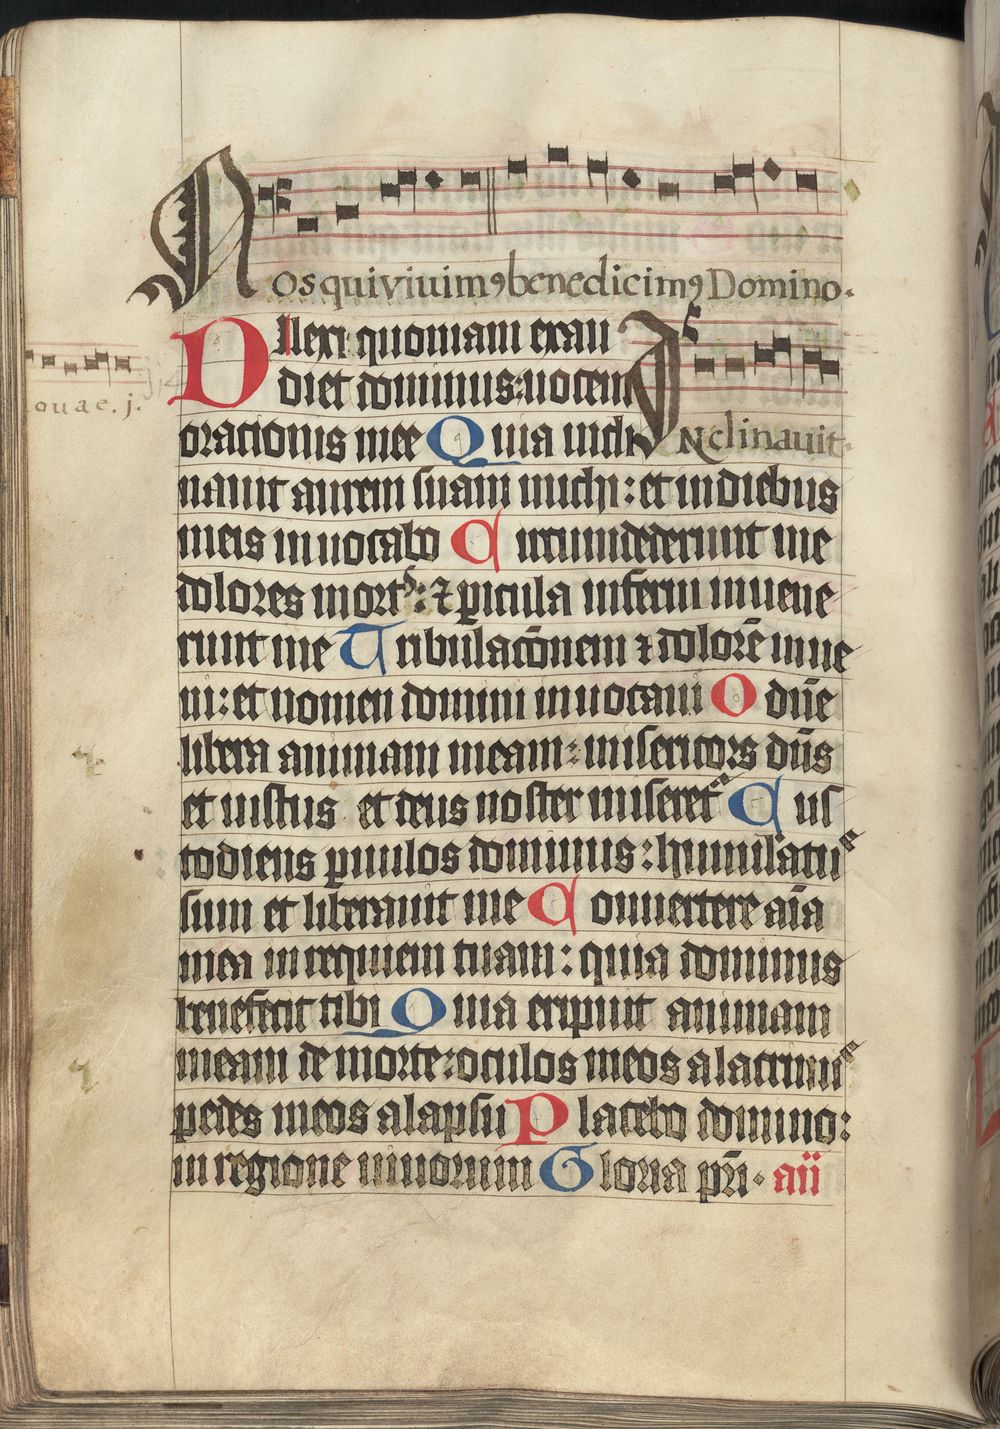 Nos qui viuimꝯ benedicimꝯ Domino.
Dilexi quoniam exau
diet dominus: uocem
Inclinauit
ouae. j.
oracionis mee Quia incli
nauit aurem suam michi: et in diebus
meis inuocabo Circumdederunt me
dolores mort: ⁊ ꝑicula inferni inuene
runt me Tribulacōnem ⁊ dolorē inue
ni: et nomen domini inuocaui O dn̄e
libera animam meam: misericors dn̄s
et iustus et deus noster miseret᷑ Cus
todiens ꝑuulos dominus: humiliatus
sum et liberauit me Conuertere aīa
mea in requiem tuam: quia dominus
benefecit tibi Quia eripuit animam
meam de morte: oculos meos a lacrimis
pedes meos a lapsu Placebo domino:
in regione uiuorum Gloria pr̄i. aii